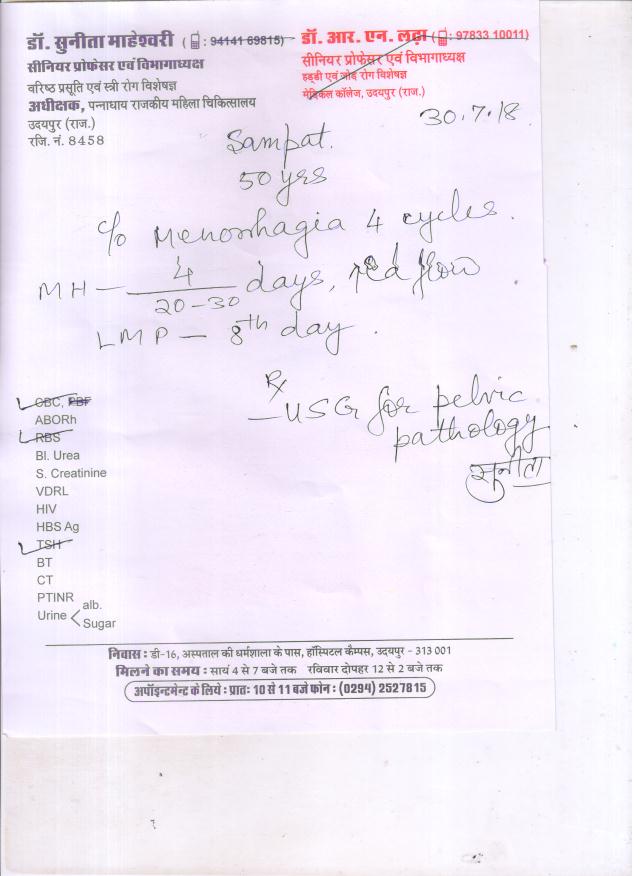 डॉ. सुनीता माहेश्वरी ( : 94141 69815)
सीनियर प्रोफेसर एवं विभागाध्यक्ष
वरिष्ठ प्रसूति एवं स्त्री रोग विशेषज्ञ
अधीक्षक, पन्नाधाय राजकीय महिला चिकित्सालय
उदयपुर (राज.)
रजि. नं. 8458
डॉ. आर. एन. लढ़ा ( : 97833 10011)
सीनियर प्रोफेसर एवं विभागाध्यक्ष
हड्डी एवं जोड रोग विशेषज्ञ
मेडिकल कॉलेज, उदयपुर (राज.)
30.7.18
Sampat.
50 yrs
c/o Menorrhagia 4 cycles.
MH – 4 days, flow
20-30
LMP – 8th day.
Rx
– USG for pelvic
pathology
सुनीता
CBC, PBF
ABORh
RBS
Bl. Urea
S. Creatinine
VDRL
HIV
HBS Ag
TSH
BT
CT
PTINR
Urine < alb.
Sugar
निवास : डी-16, अस्पताल की धर्मशाला के पास, हॉस्पिटल कैम्पस, उदयपुर - 313 001
मिलने का समय : सायं 4 से 7 बजे तक रविवार दोपहर 12 से 2 बजे तक
अपॉइन्टमेन्ट के लिये : प्रातः 10 से 11 बजे फोन : (0294) 2527815